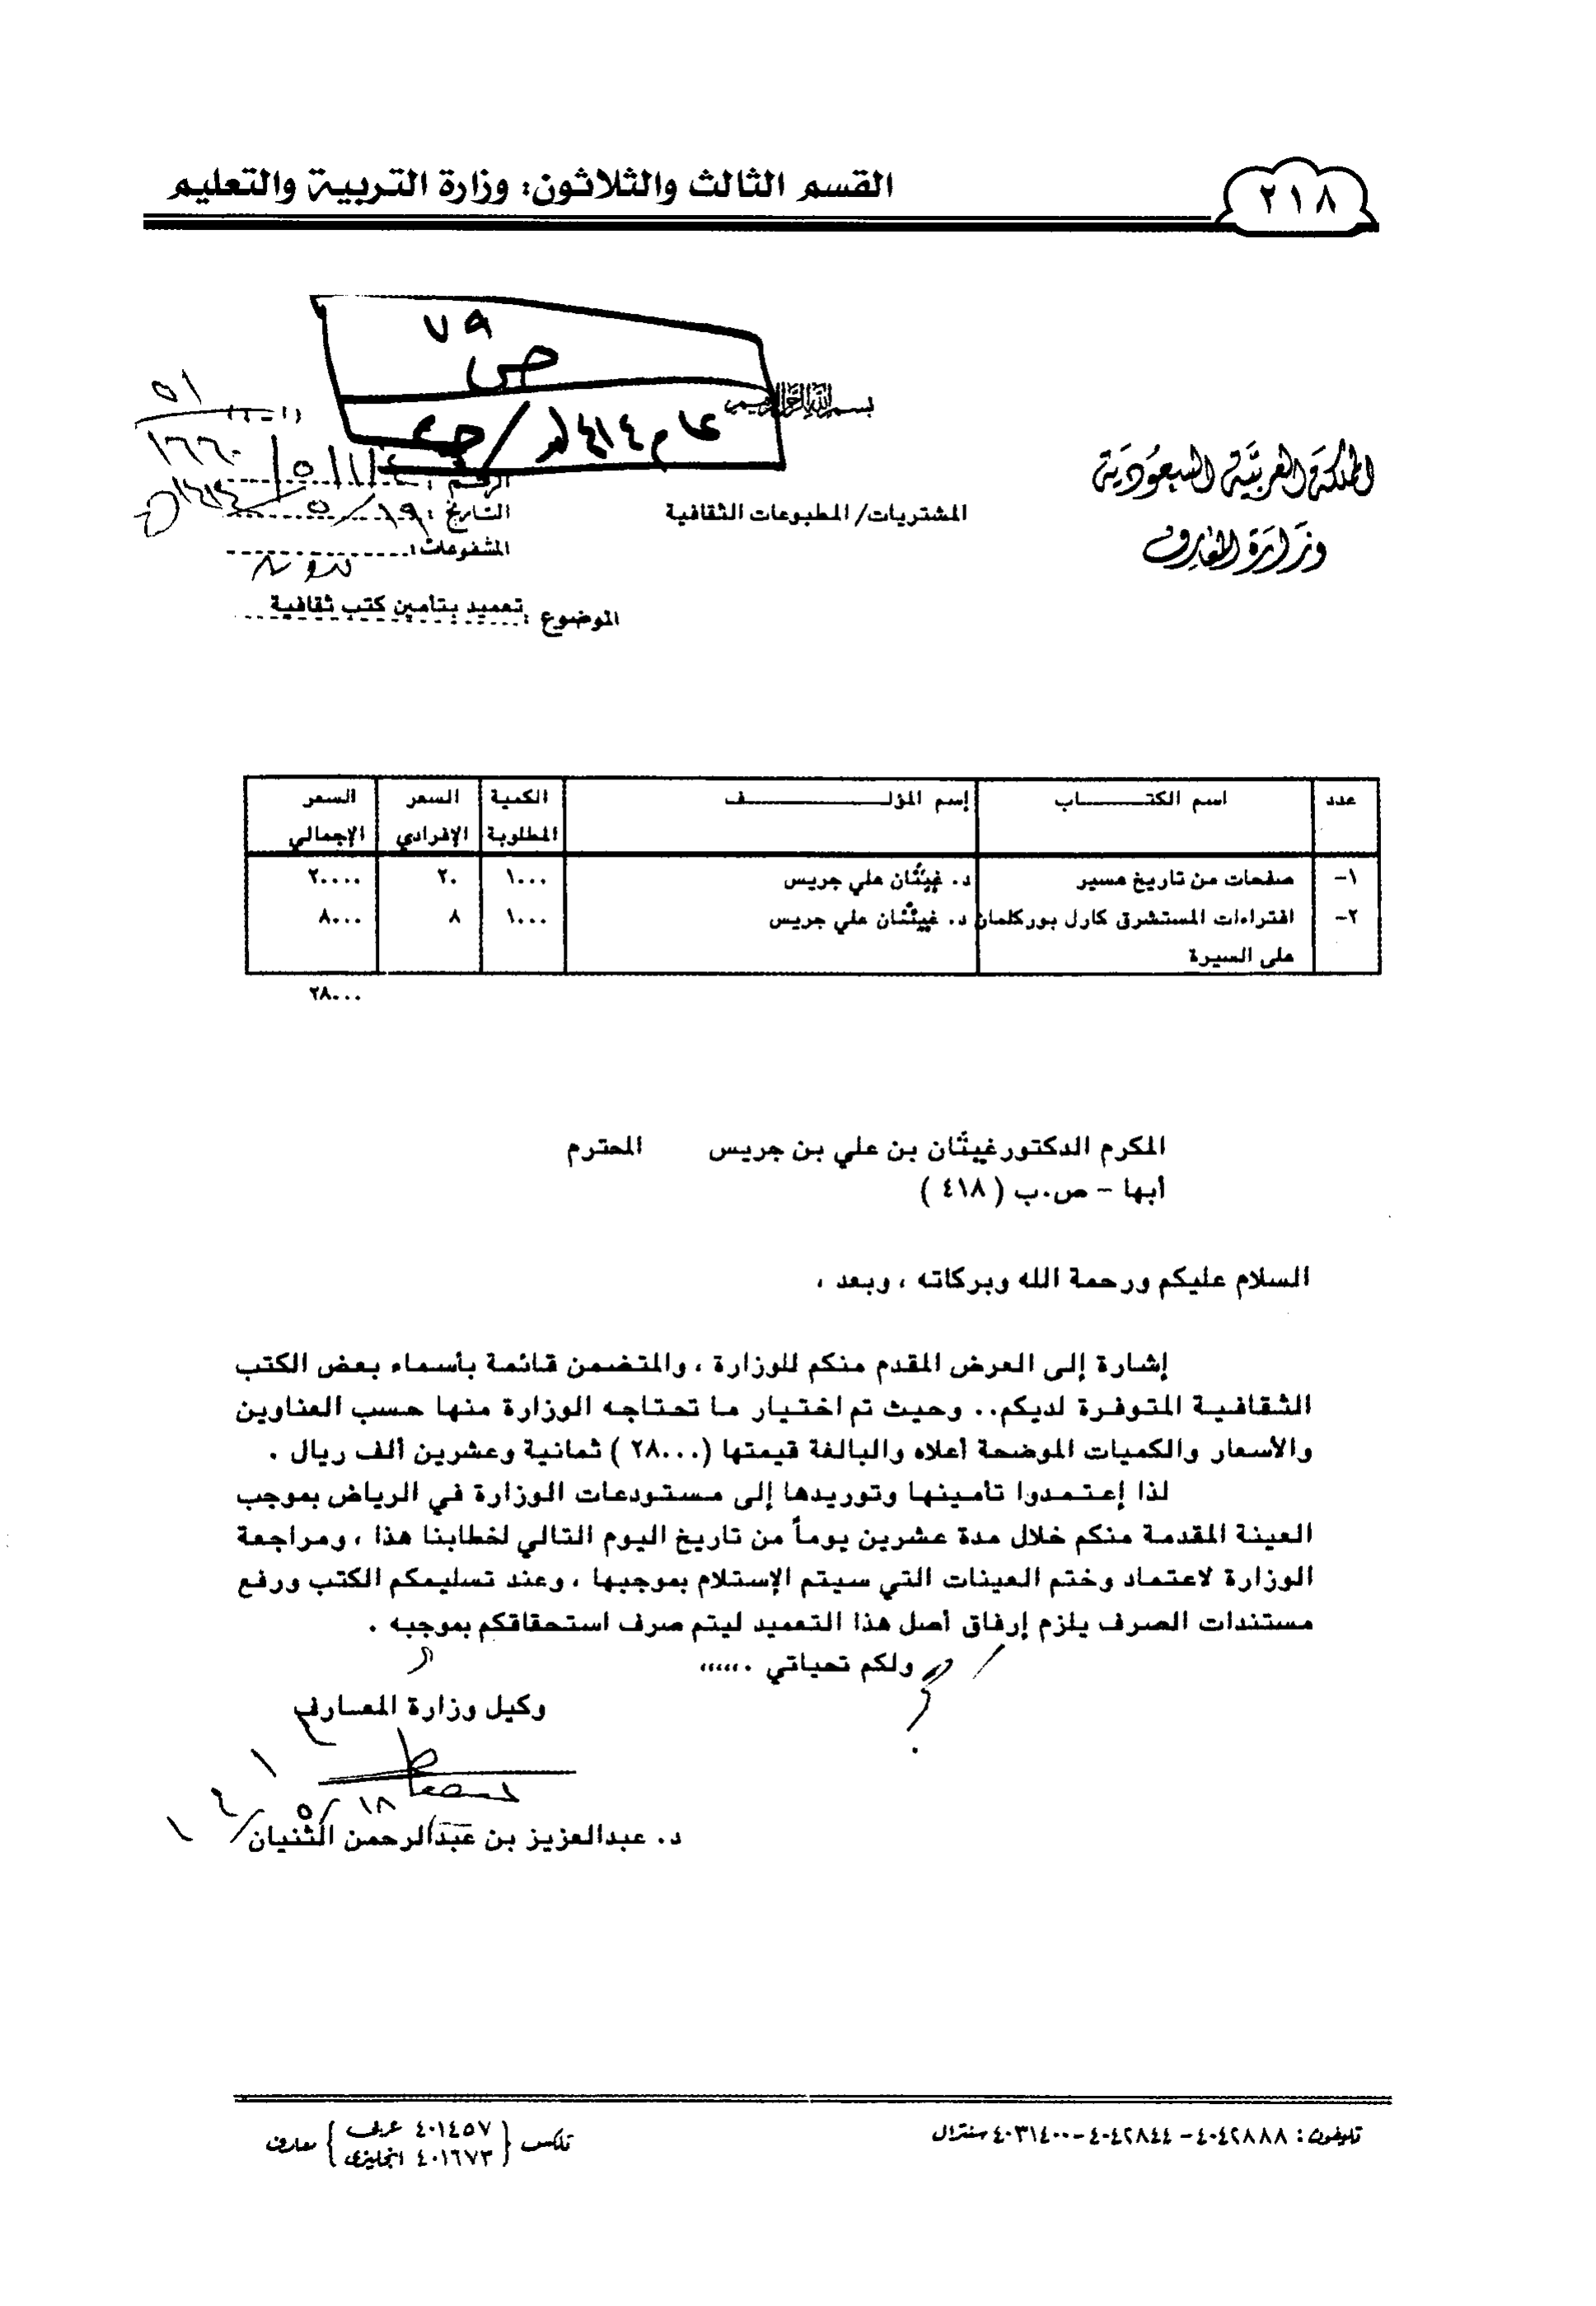 ٢١٨
القسم الثالث والثلاثون: وزارة التربية والتعليم
٧٩
ص
عام ١٤١٤هـ / جـ٤
بسم الله الرحمن الرحيم
المملكة العربية السعودية
وزارة المعارف
المشتريات/ المطبوعات الثقافية
الرقم :
التاريخ : ١٩/ ٥/ ١٤١٤
المشفوعات :
الموضوع : تعميد بتأمين كتب ثقافية
عدد اسم الكتـــاب إسم المؤلـــــف الكمية المطلوبة السعر الإفرادي السعر الإجمالي
١- صفحات من تاريخ عسير د. غيثان علي جريس ١٠٠٠ ٢٠ ٢٠٠٠٠
٢- افتراءات المستشرق كارل بوركلمان د. غيثان علي جريس ١٠٠٠ ٨ ٨٠٠٠
على السيرة
٢٨٠٠٠
المكرم الدكتور غيثان بن علي بن جريس المحترم
أبها - ص.ب ( ٤١٨ )
السلام عليكم ورحمة الله وبركاته ، وبعد ،
إشارة إلى العرض المقدم منكم للوزارة ، والمتضمن قائمة بأسماء بعض الكتب
الثقافية المتوفرة لديكم.. وحيث تم اختيار ما تحتاجه الوزارة منها حسب العناوين
والأسعار والكميات الموضحة أعلاه والبالغة قيمتها (٢٨٠٠٠ ) ثمانية وعشرين ألف ريال .
لذا إعتمدوا تأمينها وتوريدها إلى مستودعات الوزارة في الرياض بموجب
العينة المقدمة منكم خلال مدة عشرين يوماً من تاريخ اليوم التالي لخطابنا هذا ، ومراجعة
الوزارة لاعتماد وختم العينات التي سيتم الإستلام بموجبها ، وعند تسليمكم الكتب ورفع
مستندات الصرف يلزم إرفاق أصل هذا التعميد ليتم صرف استحقاقكم بموجبه .
ولكم تحياتي .،،،،،
وكيل وزارة المعارف
١٨/ ٥/
د. عبدالعزيز بن عبدالرحمن الثنيان
تليفون : ٤٠٤٢٨٨٨ - ٤٠٤٢٨٤٤ - ٤٠٣١٤٠٠ سنترال
تلكس { ٤٠١٤٥٧ عربى } معارف
٤٠١٦٧٣ انجليزى